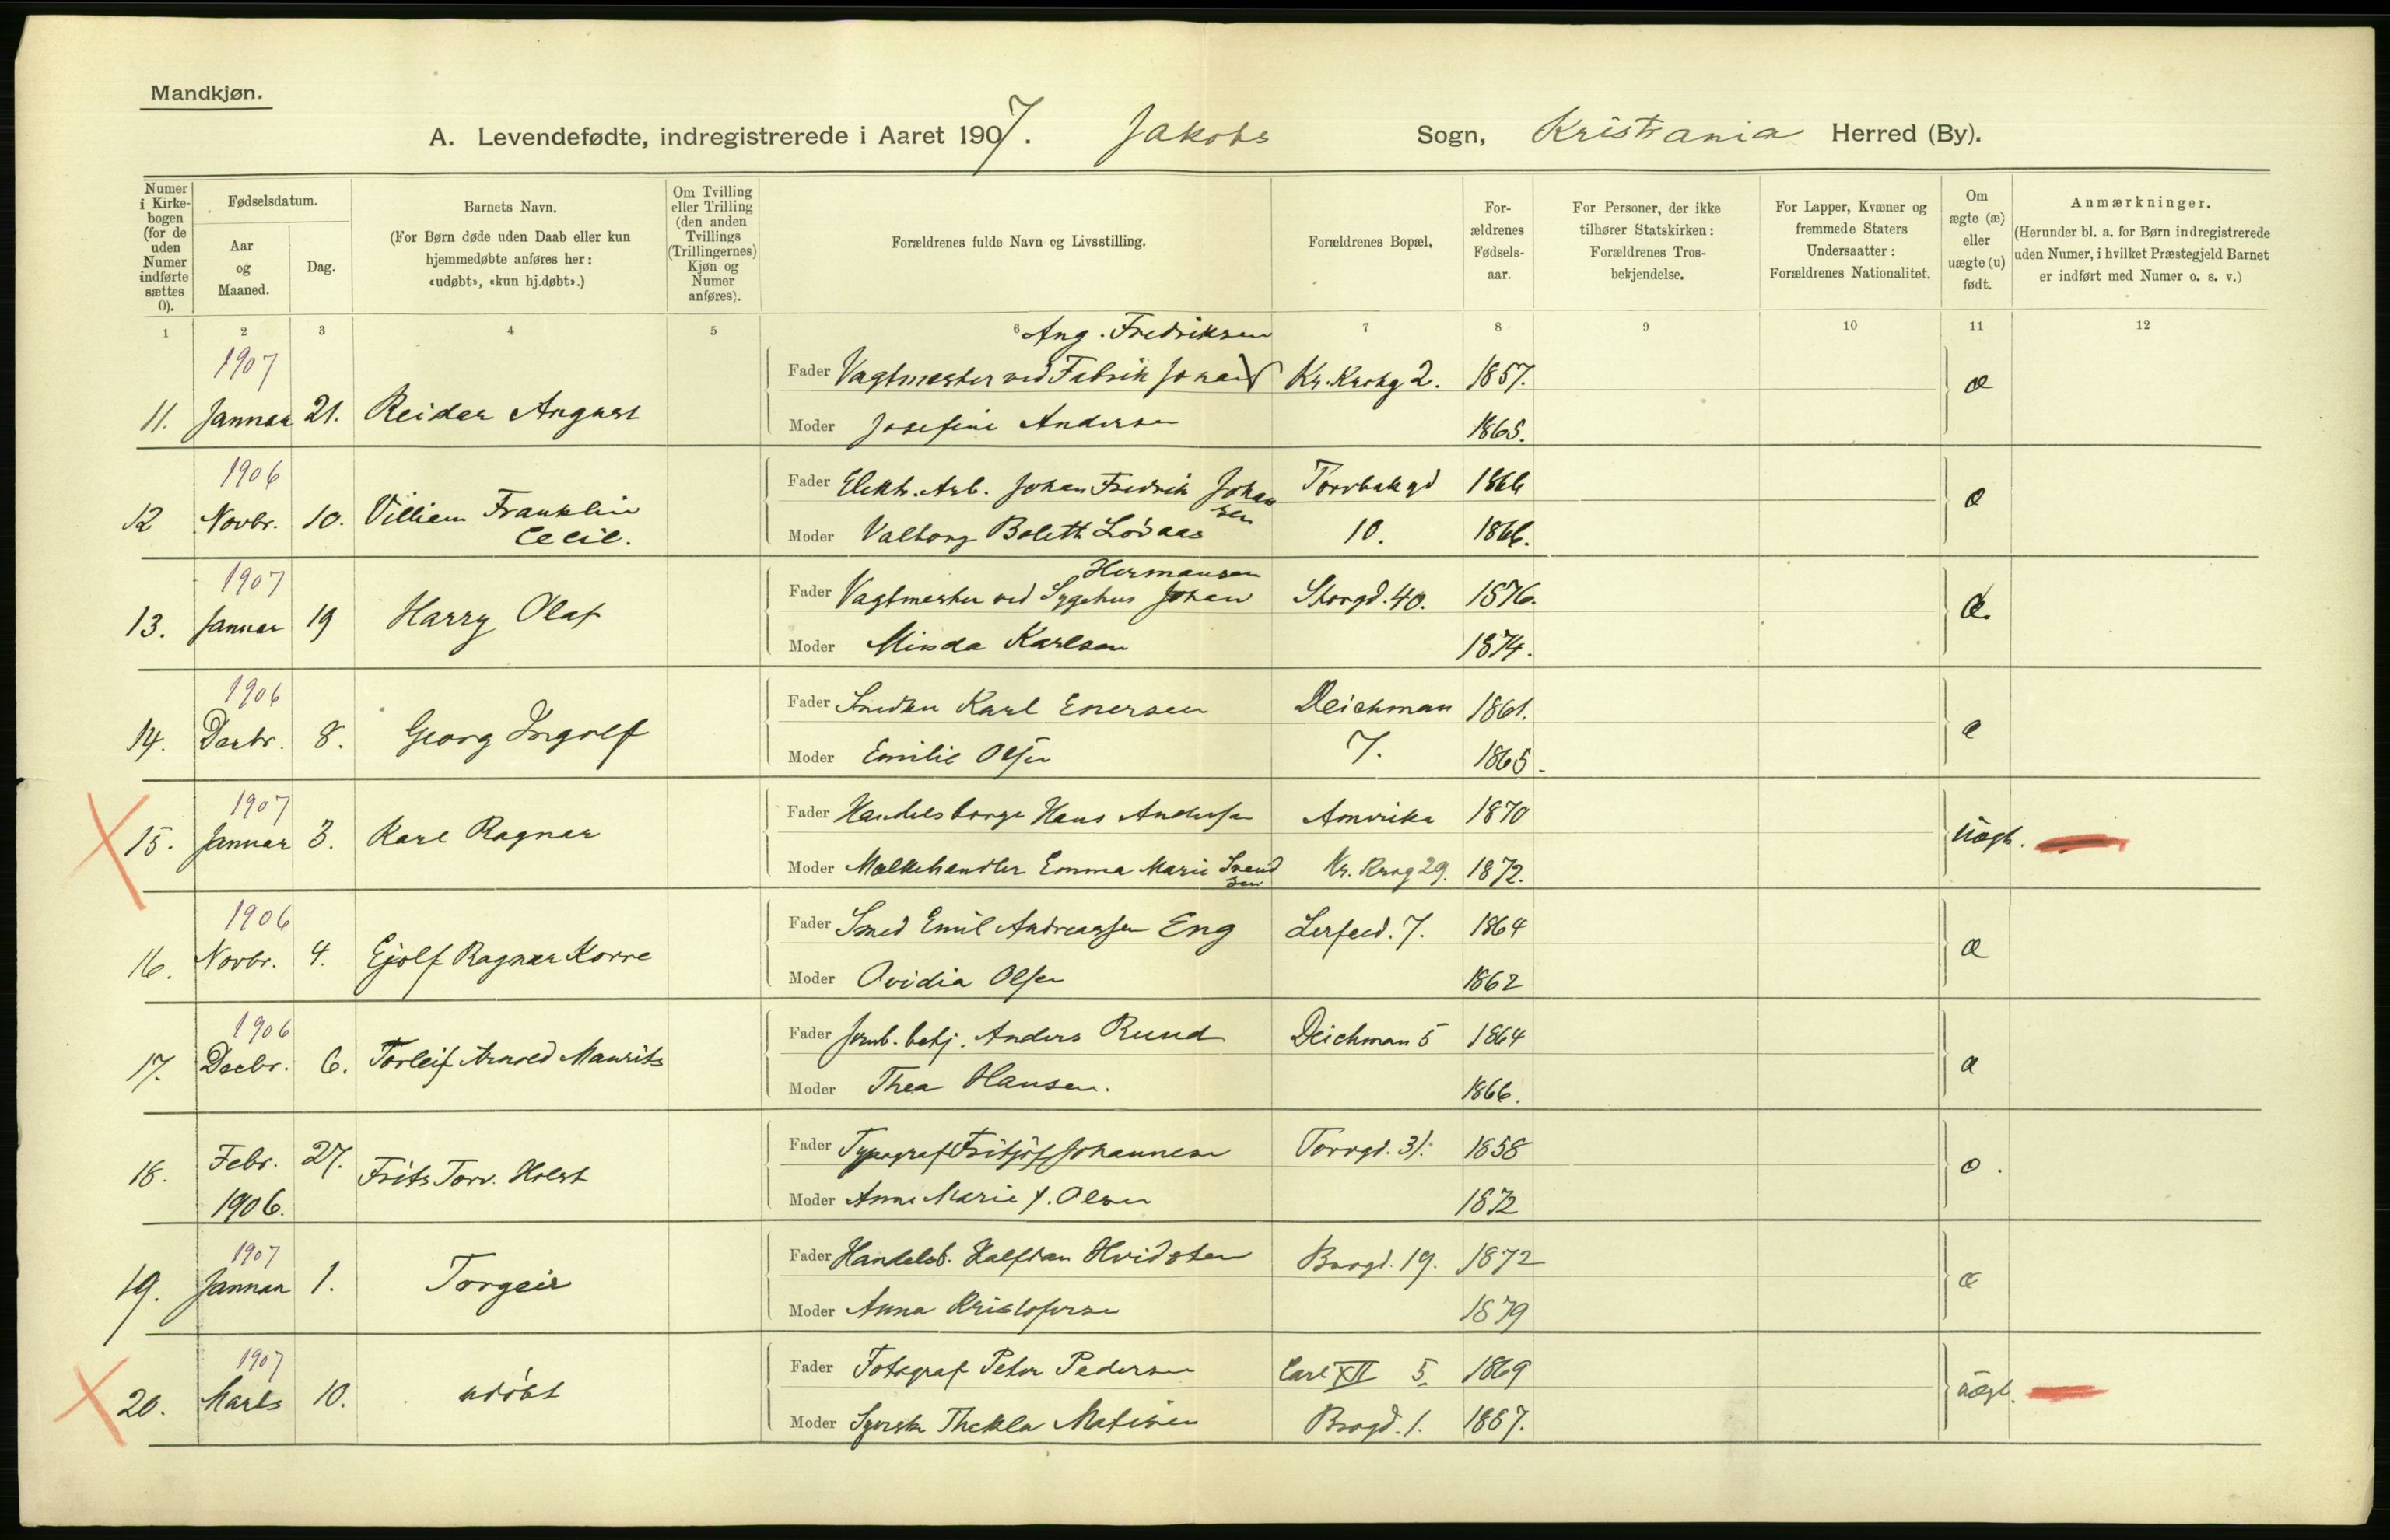 Mandkjøn.
A. Levendefødte, indregistrerede i Aaret 1907. Jakobs Sogn, Kristiania Herred (By).
Numer i Kirkebogen (for de uden Numer indførte sættes 0).
Fødselsdatum.
Aar og Maaned.
Dag.
Barnets Navn.
(For Børn døde uden Daab eller kun hjemmedøbte anføres her: «udøbt», «kun hj.døbt».)
Om Tvilling eller Trilling (den anden Tvillings (Trillingernes) Kjøn og Numer anføres).
Forældrenes fulde Navn og Livsstilling.
Forældrenes Bopæl.
Forældrenes Fødselsaar.
For Personer, der ikke tilhører Statskirken: Forældrenes Trosbekjendelse.
For Lapper, Kvæner og fremmede Staters Undersaatter: Forældrenes Nationalitet.
Om ægte (æ) eller uægte (u) født.
Anmærkninger.
(Herunder bl. a. for Børn indregistrerede uden Numer, i hvilket Præstegjeld Barnet er indført med Numer o. s. v.)
1 2 3 4 5 6 7 8 9 10 11 12
Aug. Fredriksen
1907
Fader Vagtmester ved Fabrik Johan Kr. Krohg 2. 1857. æ
11. Januar 21. Reidar August
Moder Josefine Andersen 1865.
1906
Fader Elektr. Arb. Johan Fredrik Johansen Torvbakgd 1866 æ
12 Novbr. 10. Villiam Franklin Cecil.
Moder Valborg Bolett Lövaas 10. 1866.
1907 Hermansen
Fader Vagtmester ved Sygehus Johan Storgd. 40. 1876. æ.
13. Januar 19 Harry Olaf
Moder Minda Karlsen 1874.
1906
Fader Snedker Karl Enersen Deichman 1861. æ
14. Decbr. 8. Georg Ingolf
Moder Emilie Olsen 7. 1865.
1907
Fader Handelsborger Hans Andersen Amerika 1870
15. Januar 3. Karl Ragnar uægt.
Moder Mælkehandler Emma Marie Svendsen Kr. Krog 29. 1872.
1906
Fader Smed Emil Andreassen Eng Lerfeld. 7. 1864
16. Novbr. 4. Ejolf Ragnar Korre æ
Moder Ovidia Olsen 1862
1906
Fader Jernb. betj. Anders Rund Deichman 5 1864
17. Decbr. 6. Torleif Arnold Maurits æ
Moder Thea Hansen. 1866.
Fader Typograf Fritjof Johannesen Torvgd. 31. 1858
18. Febr. 27. Frits Torv. Holst æ.
1906.
Moder Anne Marie f. Olsen 1872
1907
Fader Handelsb. Halfdan Hvidsten Brogd. 19. 1872
19. Januar 1. Torgeir æ
Moder Anna Kristofersen 1879
1907
Fader Fotograf Peter Pedersen Carl XII 5. 1869
20. Marts 10. udöbt uægt.
Moder Syerske Thekla Matisen Brogd. 1. 1867.